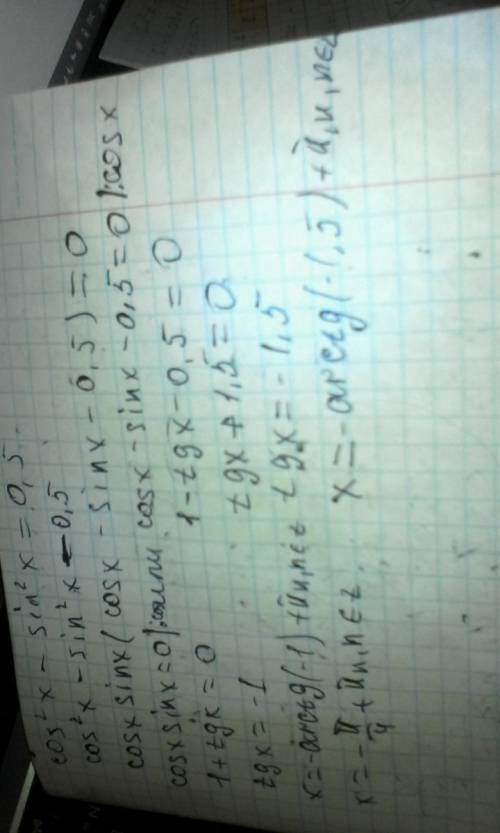 cos²x - sin²x = 0,5.
cos²x - sin²x - 0,5
cosx sinx( cosx - sinx - 0,5) = 0
cosx sinx = 0 |:cosx или cosx - sinx - 0,5 = 0 |:cosx
1 + tgx = 0 1 - tgx - 0,5 = 0
tgx = -1 tgx + 1,5 = 0
x = -arctg(-1) + πn, n∈z tgx = -1,5
x = -π/4 + πn, n∈z. x = -arctg(-1,5) + π, n, n∈z